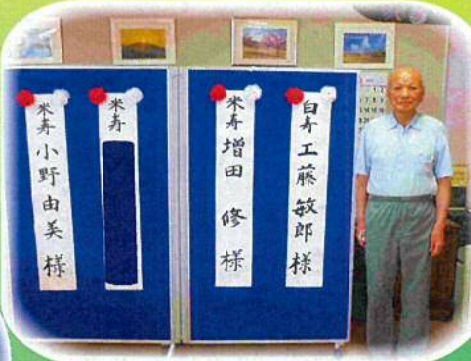 白寿 工藤敏郎様
米寿 増田 修 様
米寿
米寿 小野由美様